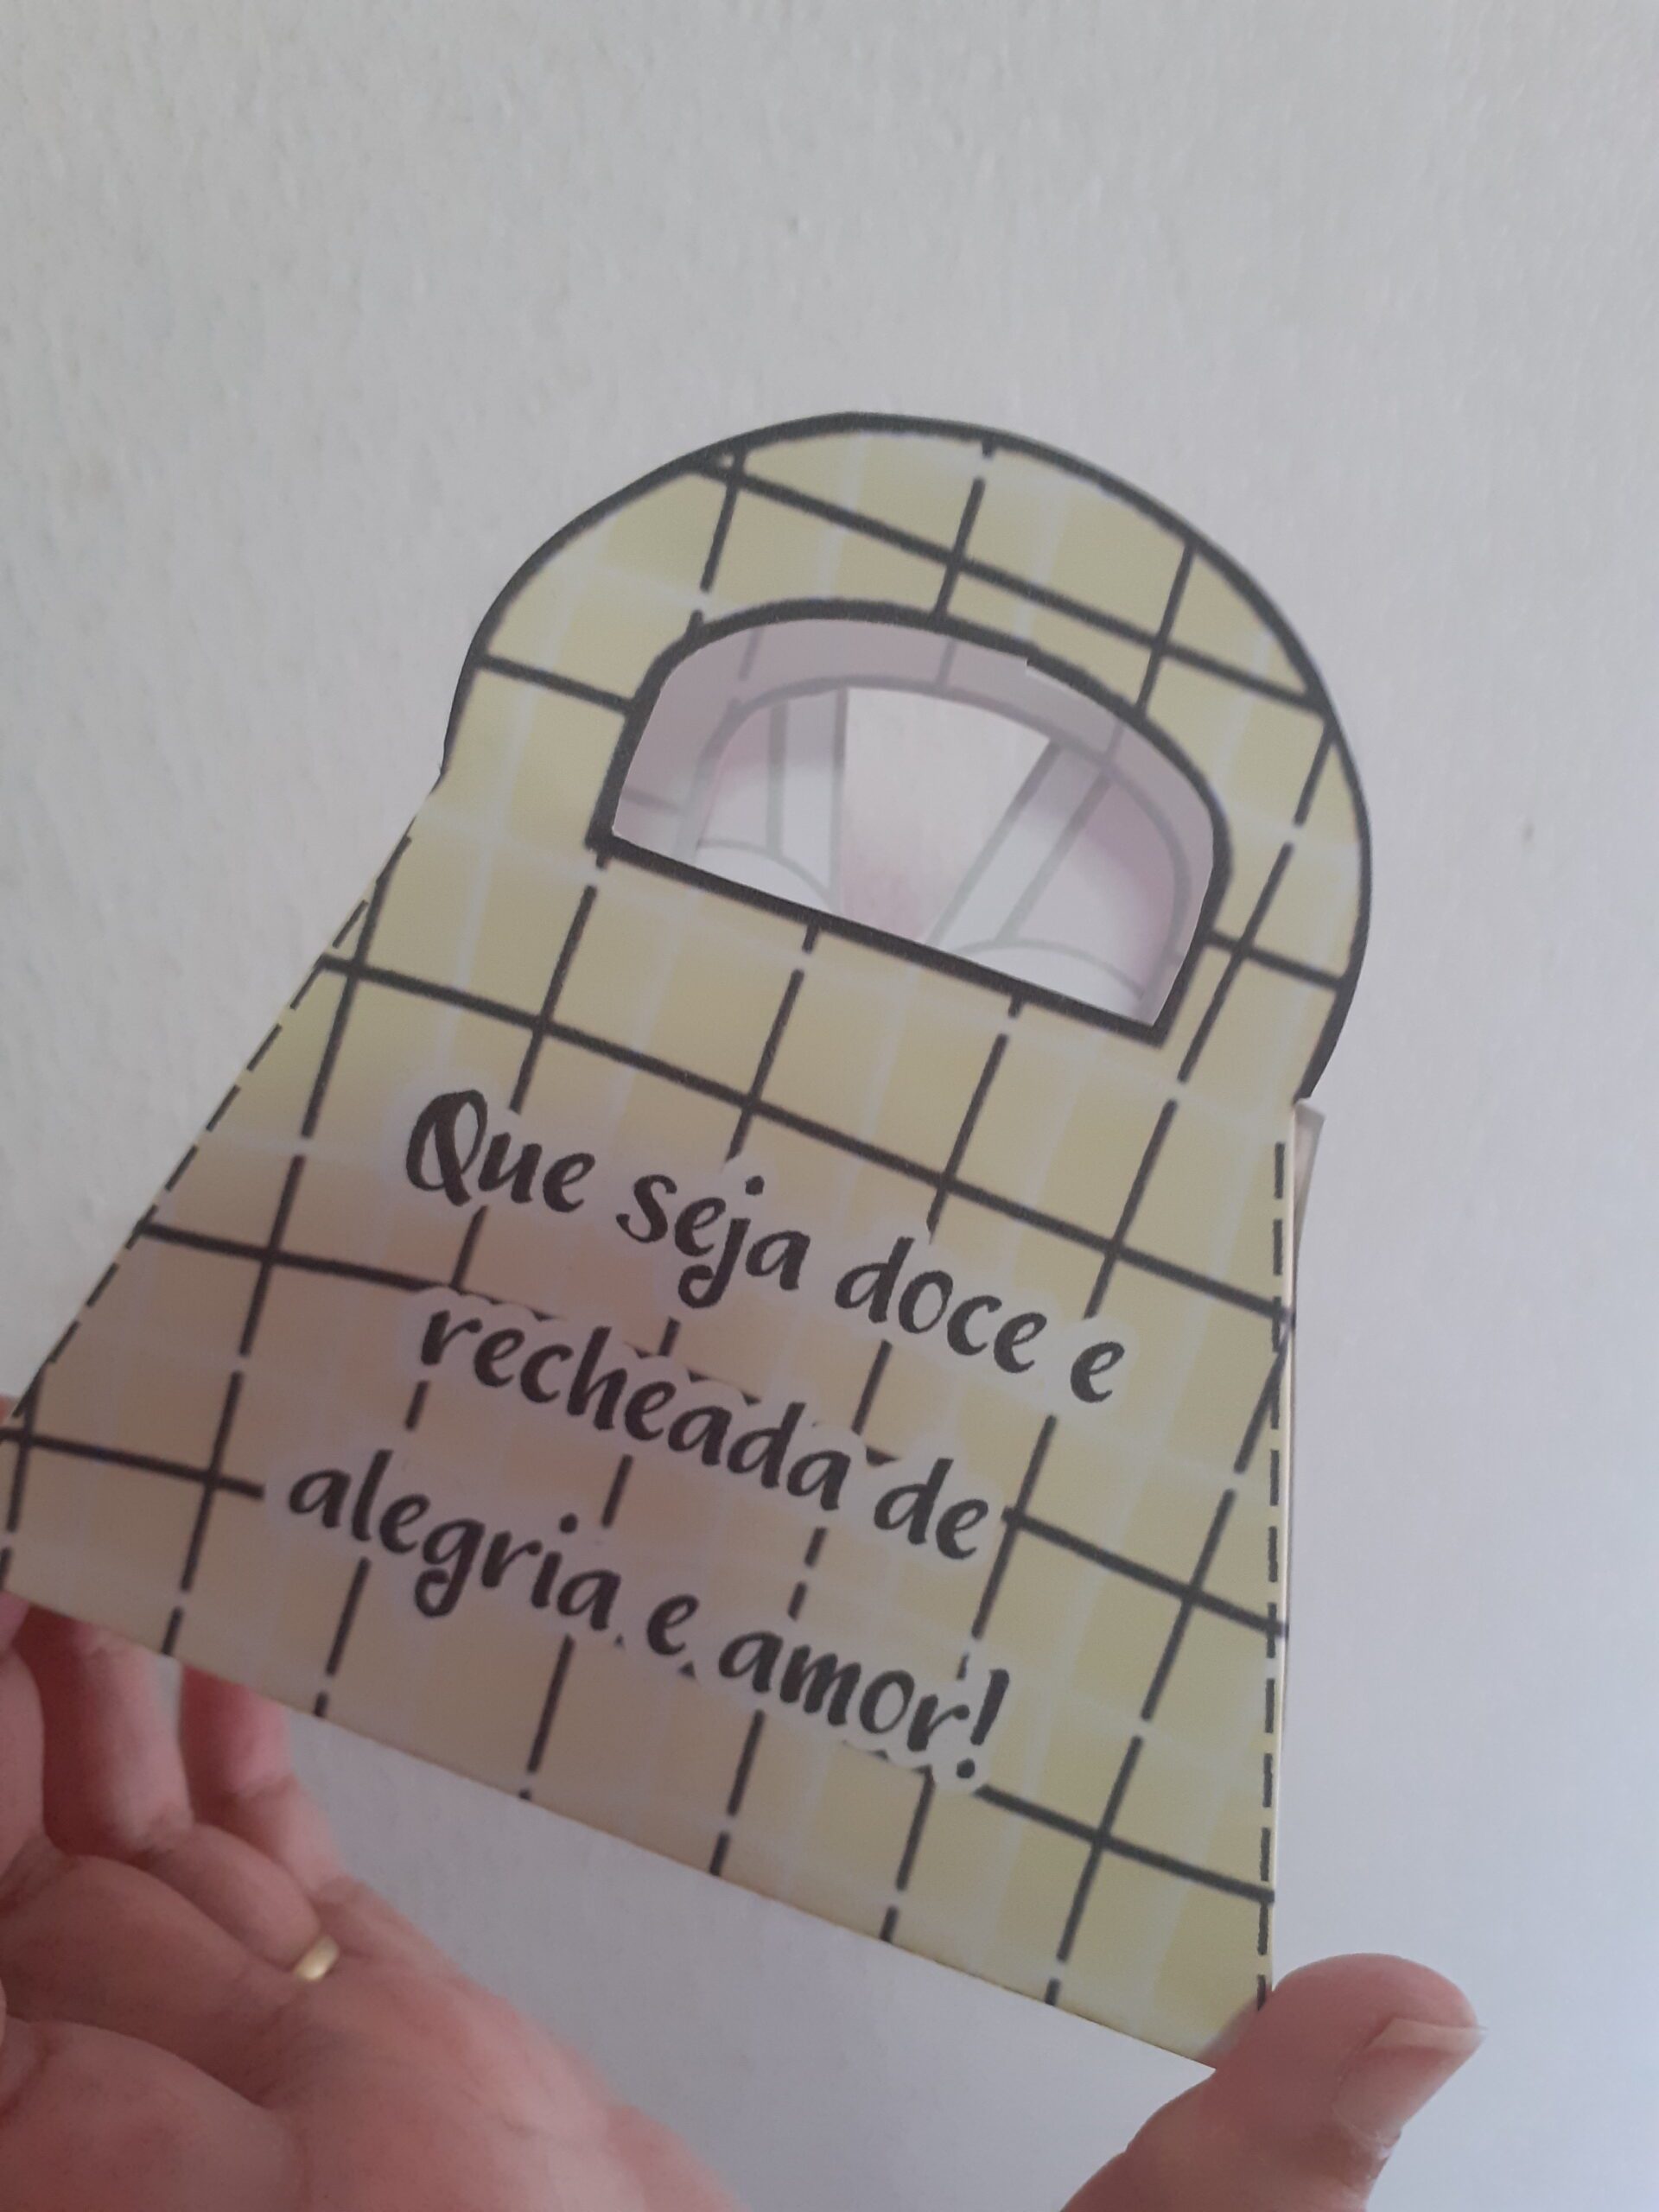 Que seja doce e
recheada de
alegria e amor!